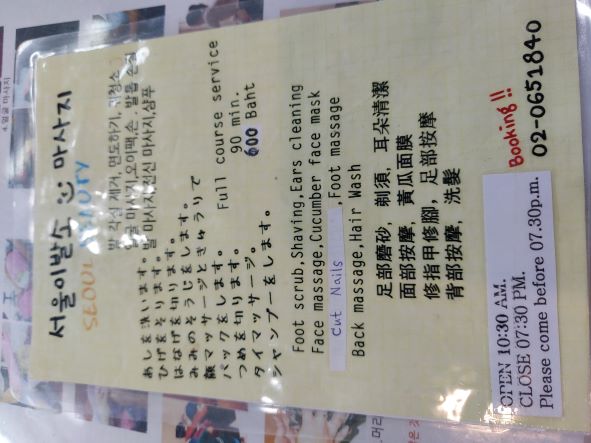 서울이발소 마사지
SEOUL BEAUTY
발 각질 제거, 면도하기, 귀청소
얼굴 마사지, 오이팩, 손.발톱 손질
발 마사지, 전신 마사지, 샴푸
Full course service
90 min.
600 Baht
あしを洗います。
ひげをそります。
はなげを切ります。
みみのそうじをします。
顔マッサージときゅうりで
パックをします。
つめを切ります。
タイマッサージ。
シャンプーをします。
Foot scrub,Shaving,Ears cleaning
Face massage,Cucumber face mask
Cut Nails ,Foot massage
Back massage,Hair Wash
足部磨砂, 剃須, 耳朵清潔
面部按摩, 黃瓜面膜
修指甲修腳, 足部按摩
背部按摩, 洗髮
Booking!!
02-0651840
OPEN 10:30 A.M.
CLOSE 07:30 PM.
Please come before 07.30p.m.
4.얼굴 마사지